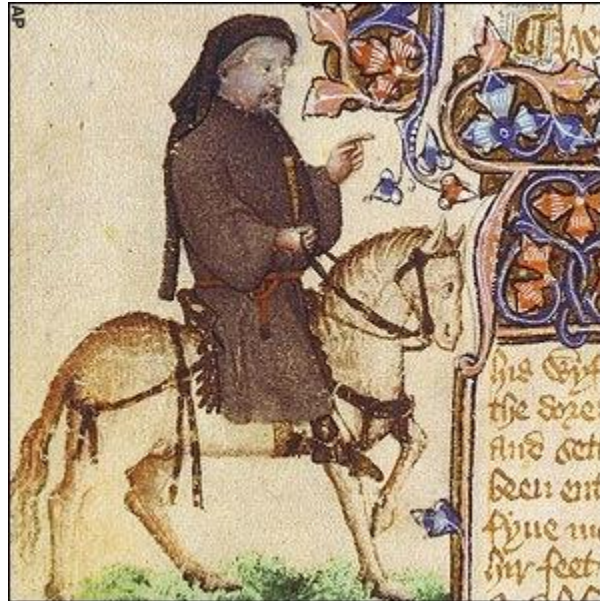 AP
his Wyf
the dore
And sett
been ent
fyue m
hir feet